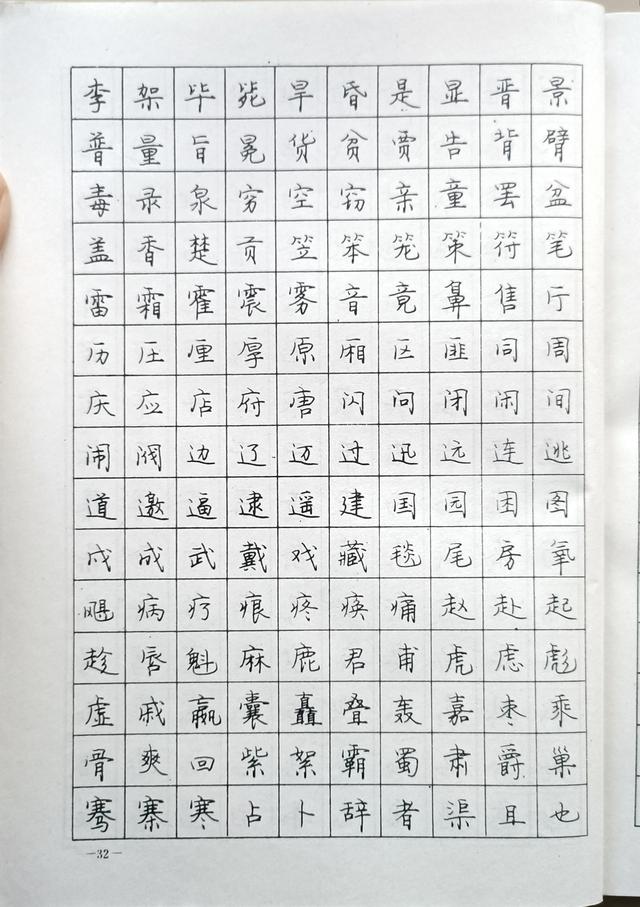 李架毕毙旱昏是显晋景
普量旨晃货贫贾告背臂
毒录泉穷空窃亲童罢盆
盖香楚贡笠笨笼策符笔
雷霜霍震雾音竟鼻售厅
历压厘厚原厢区匪同周
庆应店府唐闪问闭闲间
闹阀边辽迈过迅远连逃
道邀逼逮遥建国园困图
戊成武戴戏藏毯尾房氧
飓病疗痕疼痪痛赵赴起
趁唇魁麻鹿君甫虎虑彪
虚戚赢囊矗叠轰嘉枣乘
骨爽回紫絮霸蜀肃爵巢
骞寨寒占卜辞者渠且也
—32—